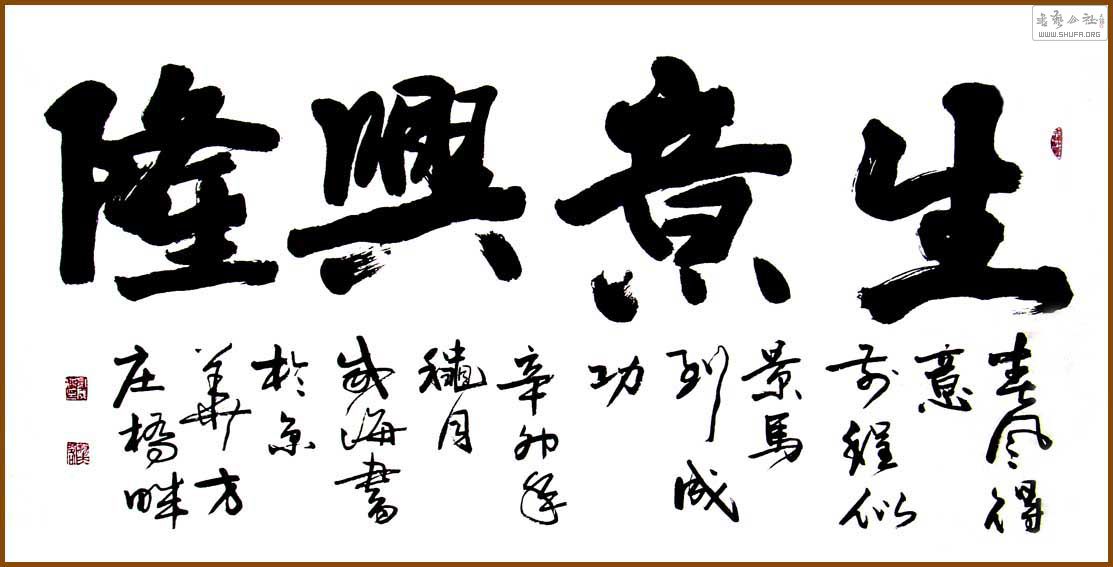 生意興隆
春风得
意
前程似
景馬
到成
功
辛卯年
穐月
海書
於京
華方
庄橋畔
书艺公社
WWW.SHUFA.ORG